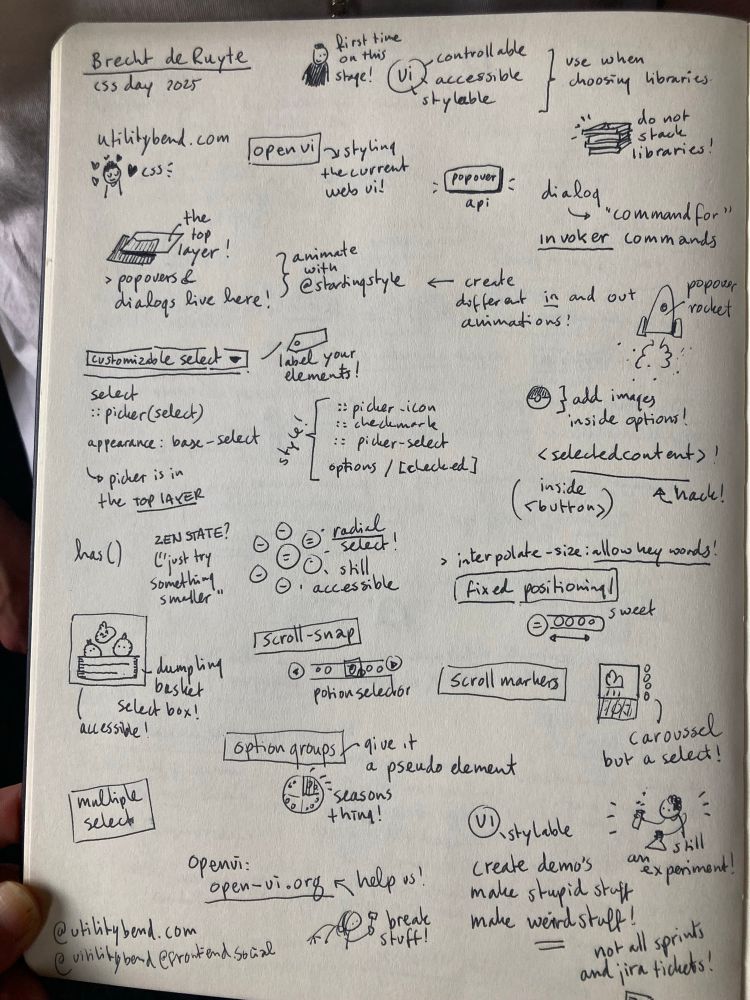 Brecht de Ruyte
css day 2025
first time
on this
stage!
UI
controllable
accessible
stylable
use when
choosing libraries
do not
stack
libraries!
utilitybend.com
css
open ui
styling
the current
web ui!
popover
api
dialog
"command for"
invoker commands
the
top
layer!
> popovers &
dialogs live here!
animate
with
@startingstyle
create
different in and out
animations!
popover
rocket
customizable select
label your
elements!
select
::picker(select)
appearance: base-select
picker is in
the TOP LAYER
style!
::picker-icon
::checkmark
::picker-select
options / [checked]
add images
inside options!
<selectedcontent>!
inside
<button>
hack!
has()
ZEN STATE?
("just try
something
smaller"
radial
select!
still
accessible
> interpolate-size: allow key words!
fixed positioning!
sweet
dumpling
basket
select box!
accessible!
scroll-snap
potion selector
scroll markers
caroussel
but a select!
option groups
give it
a pseudo element
seasons
thing!
multiple
select
UI
stylable
create demo's
make stupid stuff
make weird stuff!
not all sprints
and jira tickets!
still
an experiment!
Openui:
open-ui.org
help us!
break
stuff!
@utilitybend.com
@utilitybend@frontend.social